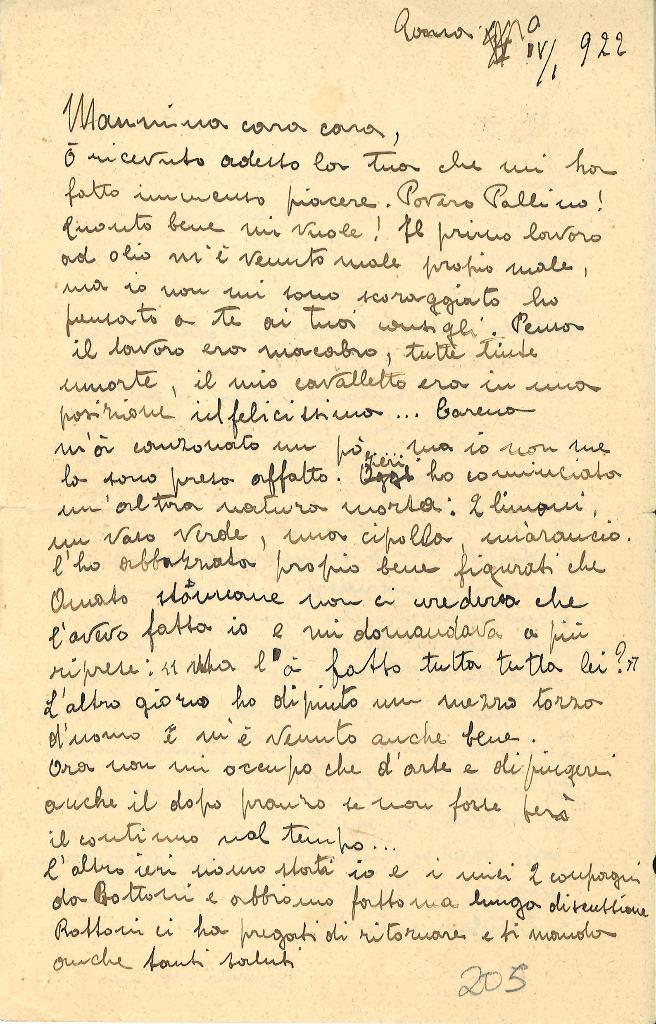 Roma IV/1 922
Mammina cara cara,
ò ricevuto adesso la tua che mi ha
fatto immenso piacere. Povero Pallino!
quanto bene mi vuole! Il primo lavoro
ad olio m'è venuto male propio male,
ma io non mi sono scoraggiato ho
pensato a te ai tuoi consigli. Pensa
il lavoro era macabro, tutte tinte
smorte, il mio cavalletto era in una
posizione infelicissima... Carena
m'à canzonato un pò, ma io non me
la sono presa affatto. Ieri ho cominciata
un'altra natura morta: 2 limoni,
un vaso verde, una cipolla, un'arancio.
l'ho abbozzata propio bene figurati che
Amato stamane non ci credeva che
l'avevo fatta io e mi domandava a più
riprese: "Ma l'à fatto tutta tutta lei?"
L'altro giorno ho dipinto un mezzo torso
d'uomo e m'è venuto anche bene.
Ora non mi occupo che d'arte e dipingerei
anche il dopo pranzo se non fosse però
il continuo mal tempo...
l'altro ieri siamo stati io e i miei 2 compagni
da Bottoni e abbiamo fatto una lunga discussione
Bottoni ci ha pregati di ritornare e ti manda
anche tanti saluti
205